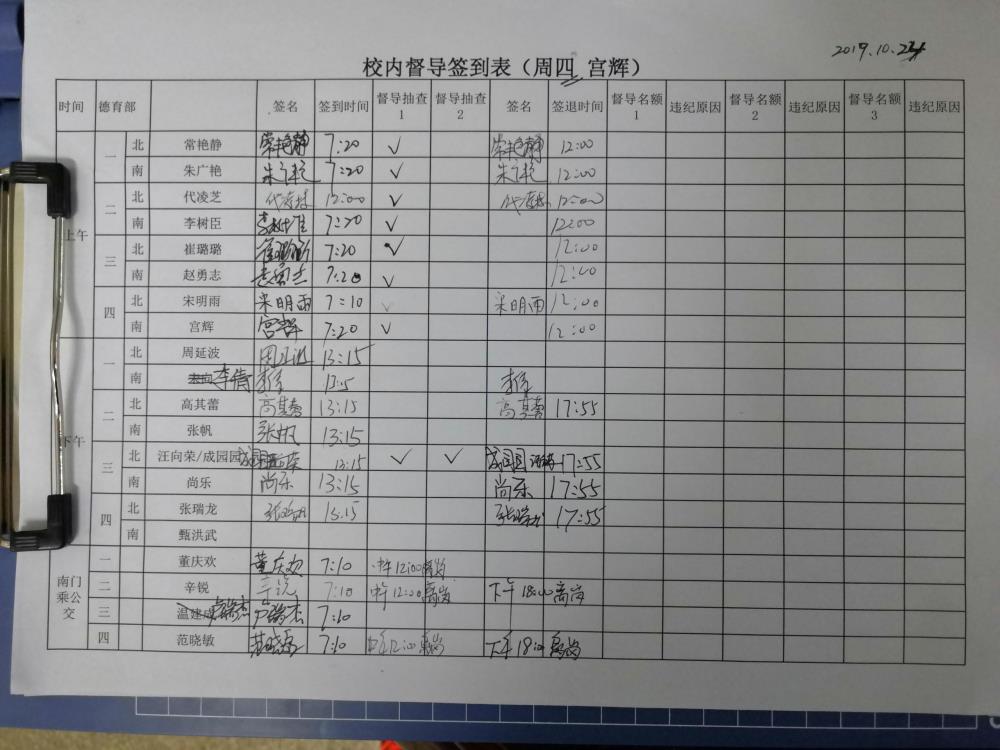 2019.10.24
校内督导签到表（周四 宫辉）
时间 德育部 签名 签到时间 督导抽查1 督导抽查2 签名 签退时间 督导名额1 违纪原因 督导名额2 违纪原因 督导名额3 违纪原因
上午
一 北 常艳静 常艳静 7:20 ✓ 常艳静 12:00
南 朱广艳 朱广艳 7:20 ✓ 朱广艳 12:00
二 北 代凌芝 代凌芝 12:00 ✓ 代凌芝 12:00
南 李树臣 李树臣 7:20 ✓ 12:00
三 北 崔璐璐 崔璐璐 7:20 ✓ 12:00
南 赵勇志 7:20 ✓ 12:00
四 北 宋明雨 宋明雨 7:10 ✓ 宋明雨 12:00
南 宫辉 宫辉 7:20 ✓ 12:00
下午
一 北 周延波 周延波 13:15
南 李倩 李倩 13:15 李倩
二 北 高其蕾 高其蕾 13:15 高其蕾 17:55
南 张帆 张帆 13:15
三 北 汪向荣/成园园 13:15 ✓ ✓ 成园园 17:55
南 尚乐 尚乐 13:15 尚乐 17:55
四 北 张瑞龙 张瑞龙 13:15 张瑞龙 17:55
南 甄洪武
南门乘公交
一 董庆欢 董庆欢 7:10 中午12:00离岗
二 辛锐 辛锐 7:10 中午12:00离岗 下午18:00离岗
三 温建成 7:10
四 范晓敏 范晓敏 7:10 中午12:00离岗 下午18:00离岗